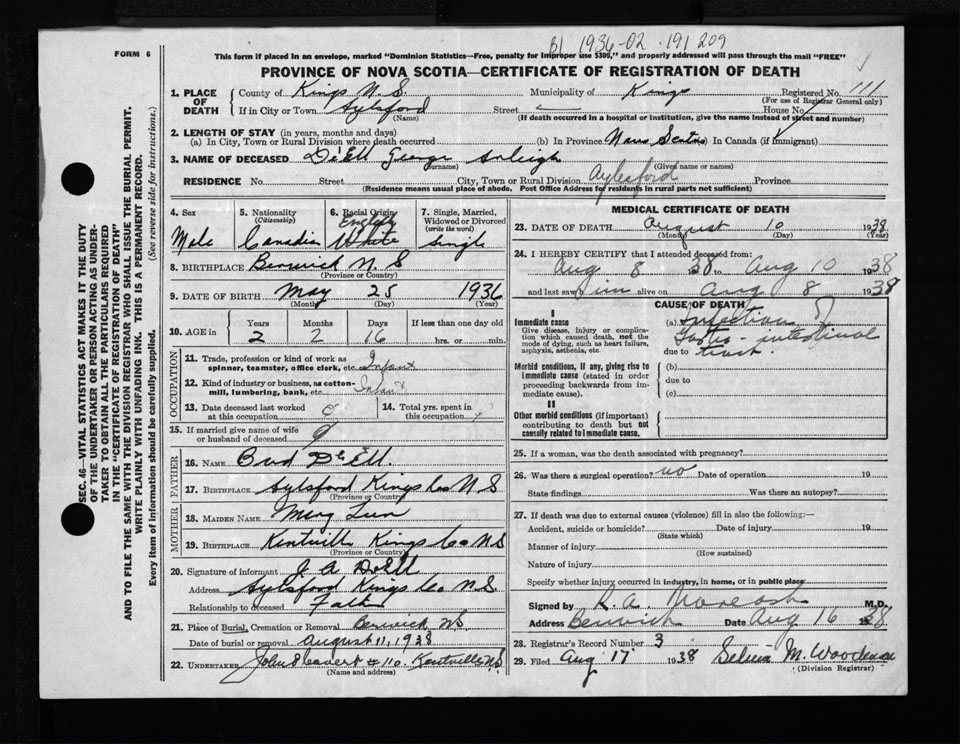 B1 1936-02-191209
FORM 6
This form if placed in an envelope, marked "Dominion Statistics—Free, penalty for improper use $300," and properly addressed will pass through the mail "FREE"
PROVINCE OF NOVA SCOTIA—CERTIFICATE OF REGISTRATION OF DEATH
1. PLACE OF DEATH County of Kings N.S. Municipality of Kings Registered No. 111
(For use of Registrar General only)
If in City or Town Aylsford Street House No.
(Name) (If death occurred in a hospital or institution, give the name instead of street and number)
2. LENGTH OF STAY (in years, months and days)
(a) In City, Town or Rural Division where death occurred (b) In Province Nova Scotia In Canada (if immigrant)
3. NAME OF DECEASED DeEll George Arleigh
(Surname) (Given name or names)
RESIDENCE No. Street City, Town or Rural Division Aylesford Province
(Residence means usual place of abode. Post Office Address for residents in rural parts not sufficient)
4. Sex 5. Nationality 6. Racial Origin 7. Single, Married, Widowed or Divorced
(Citizenship) (write the word)
Male Canadian English White Single
8. BIRTHPLACE Berwick N.S
(Province or Country)
9. DATE OF BIRTH May 25 1936
(Month) (Day) (Year)
10. AGE in Years Months Days If less than one day old
2 2 16 hrs. or min.
OCCUPATION
11. Trade, profession or kind of work as spinner, teamster, office clerk, etc. Infant
12. Kind of industry or business, as cotton-mill, lumbering, bank, etc. Infant
13. Date deceased last worked at this occupation 0 14. Total yrs. spent in this occupation
15. If married give name of wife or husband of deceased
FATHER
16. NAME Bud DeEll.
17. BIRTHPLACE Aylsford Kings Co N S
(Province or Country)
MOTHER
18. MAIDEN NAME Mary
19. BIRTHPLACE Kentville Kings Co NS
(Province or Country)
20. Signature of informant J A DeEll
Address Aylsford Kings Co N.S
Relationship to deceased Father
21. Place of Burial, Cremation or Removal Berwick N.S,
Date of burial or removal August 11, 1938
22. UNDERTAKER Kentville N.S.
(Name and address)
MEDICAL CERTIFICATE OF DEATH
23. DATE OF DEATH August 10 1938
(Month) (Day) (Year)
24. I HEREBY CERTIFY that I attended deceased from:
Aug 8 38 to Aug 10 1938
and last saw him alive on Aug 8 1938
CAUSE OF DEATH
I
Immediate cause (a) Infection of
Give disease, injury or complication which caused death, not the mode of dying, such as heart failure, asphyxia, asthenia, etc. Gastro-intestinal
due to tract.
Morbid conditions, if any, giving rise to immediate cause (stated in order proceeding backwards from immediate cause). (b)
due to
(c)
II
Other morbid conditions (if important) contributing to death but not causally related to immediate cause.
25. If a woman, was the death associated with pregnancy?
26. Was there a surgical operation? no Date of operation 19
State findings Was there an autopsy?
27. If death was due to external causes (violence) fill in also the following:—
Accident, suicide or homicide? Date of injury 19
(State which)
Manner of injury
(How sustained)
Nature of injury
Specify whether injury occurred in industry, in home, or in public place
Signed by R. A. M.D.
Address Berwick Date Aug 16 1938
28. Registrar's Record Number 3
29. Filed Aug 17 1938 Selena M. Woodman
(Division Registrar)
SEC. 46—VITAL STATISTICS ACT MAKES IT THE DUTY
OF THE UNDERTAKER OR PERSON ACTING AS UNDER-
TAKER TO OBTAIN ALL THE PARTICULARS REQUIRED
IN THE "CERTIFICATE OF REGISTRATION OF DEATH"
AND TO FILE THE SAME WITH THE DIVISION REGISTRAR WHO SHALL ISSUE THE BURIAL PERMIT.
WRITE PLAINLY WITH UNFADING INK. THIS IS A PERMANENT RECORD.
Every item of information should be carefully supplied. (See reverse side for instructions.)